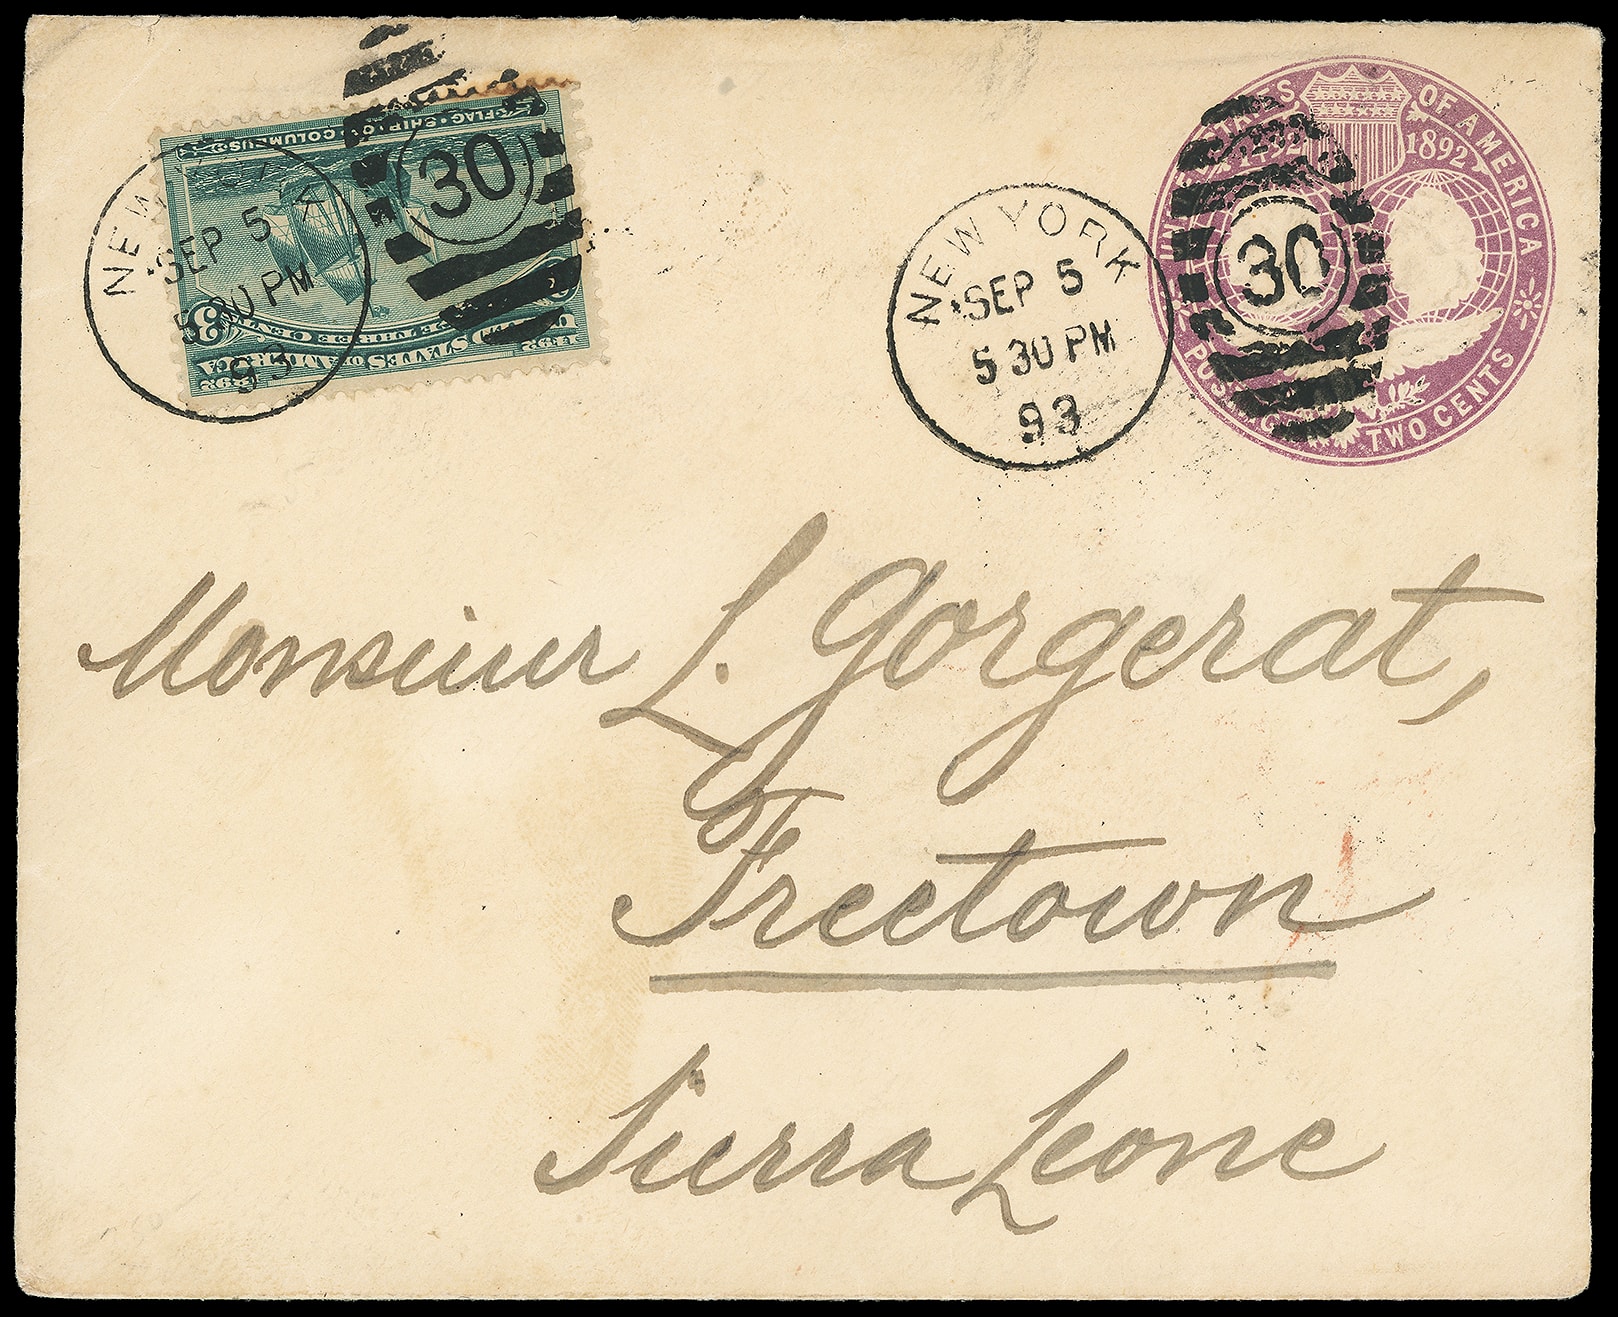 FLAG-SHIP OF COLUMBUS
1492 1892
UNITED STATES OF AMERICA
THREE CENTS
3
NEW YORK
SEP 5
5 30 PM
93
30
NEW YORK
SEP 5
5 30 PM
93
30
UNITED STATES OF AMERICA
1492 1892
POSTAGE TWO CENTS
Monsieur L. Gorgerat,
Freetown
Sierra Leone